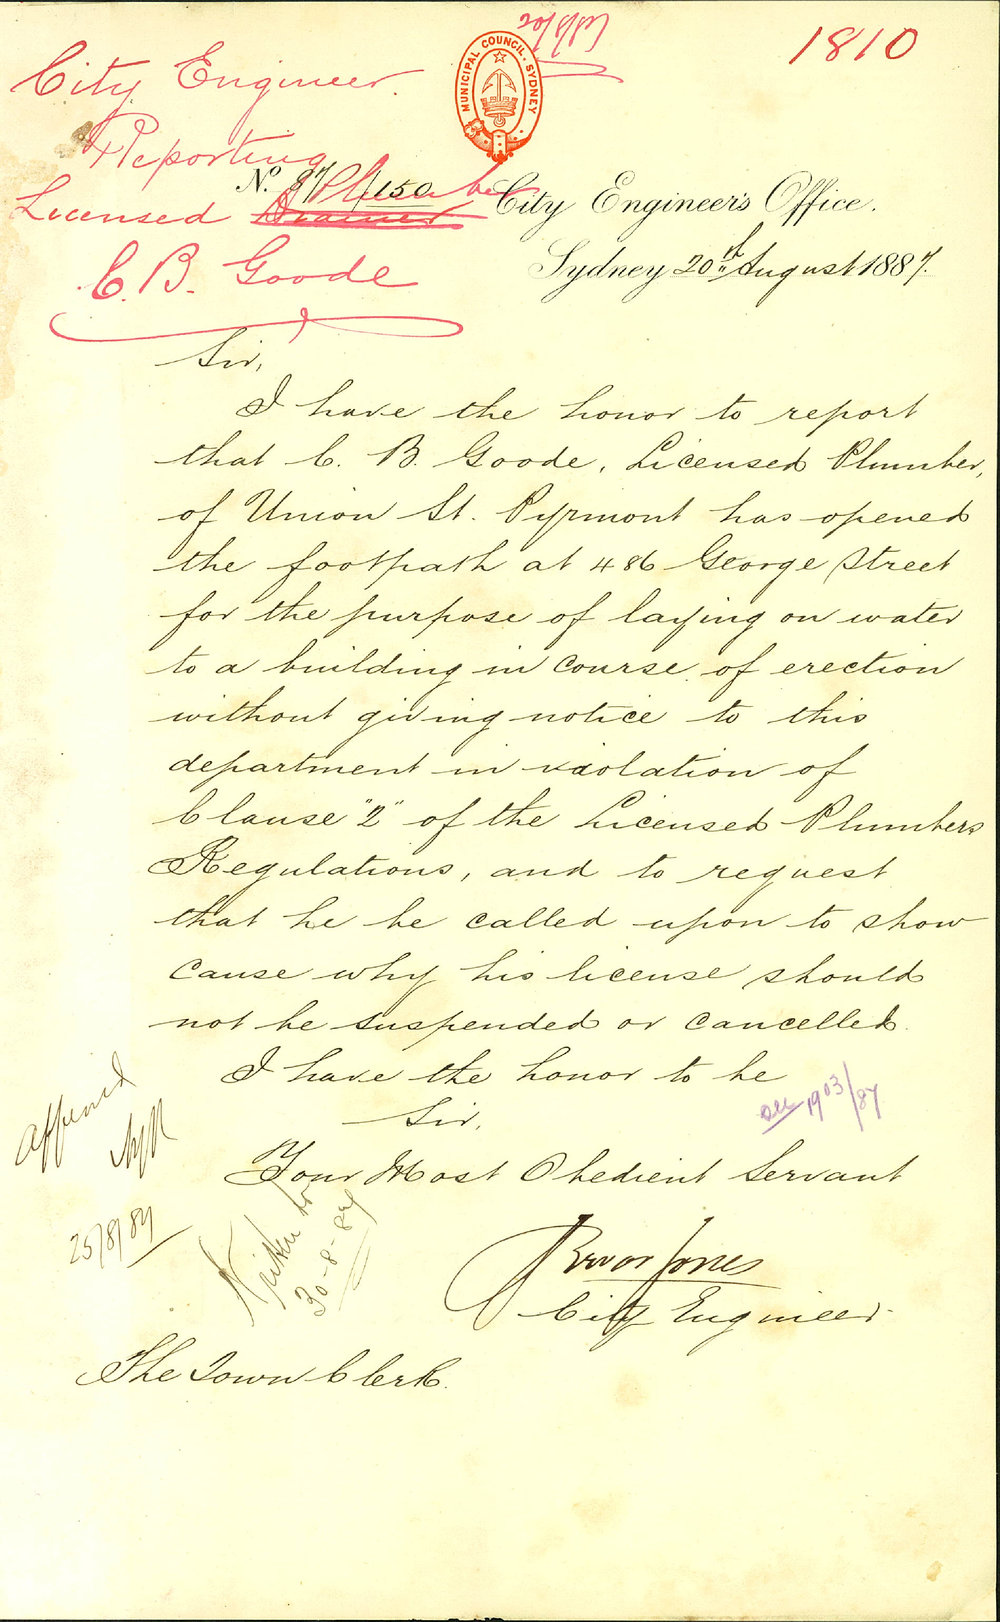 1810
MUNICIPAL COUNCIL. SYDNEY
City Engineer.
Reporting
Licensed Drainer Plumber
C. B. Goode
No. 87/1150
City Engineer's Office.
Sydney 20th August 1887.
Sir,
I have the honor to report
that C. B. Goode, Licensed Plumber,
of Union St. Pyrmont has opened
the footpath at 486 George Street
for the purpose of laying on water
to a building in course of erection
without giving notice to this
department in violation of
Clause "2" of the Licensed Plumbers
Regulations, and to request
that he be called upon to show
cause why his license should
not be suspended or cancelled.
I have the honor to be
Sir,
see 1903/87
Your Most Obedient Servant
Trevor Jones
City Engineer
25/8/87
Written to
30-8-87
The Town Clerk.